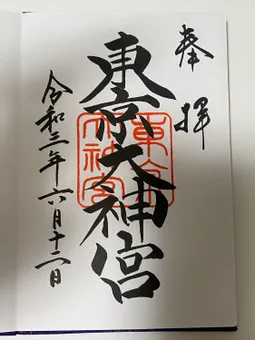 奉拝
東京大神宮
令和三年六月十二日
東京大神宮